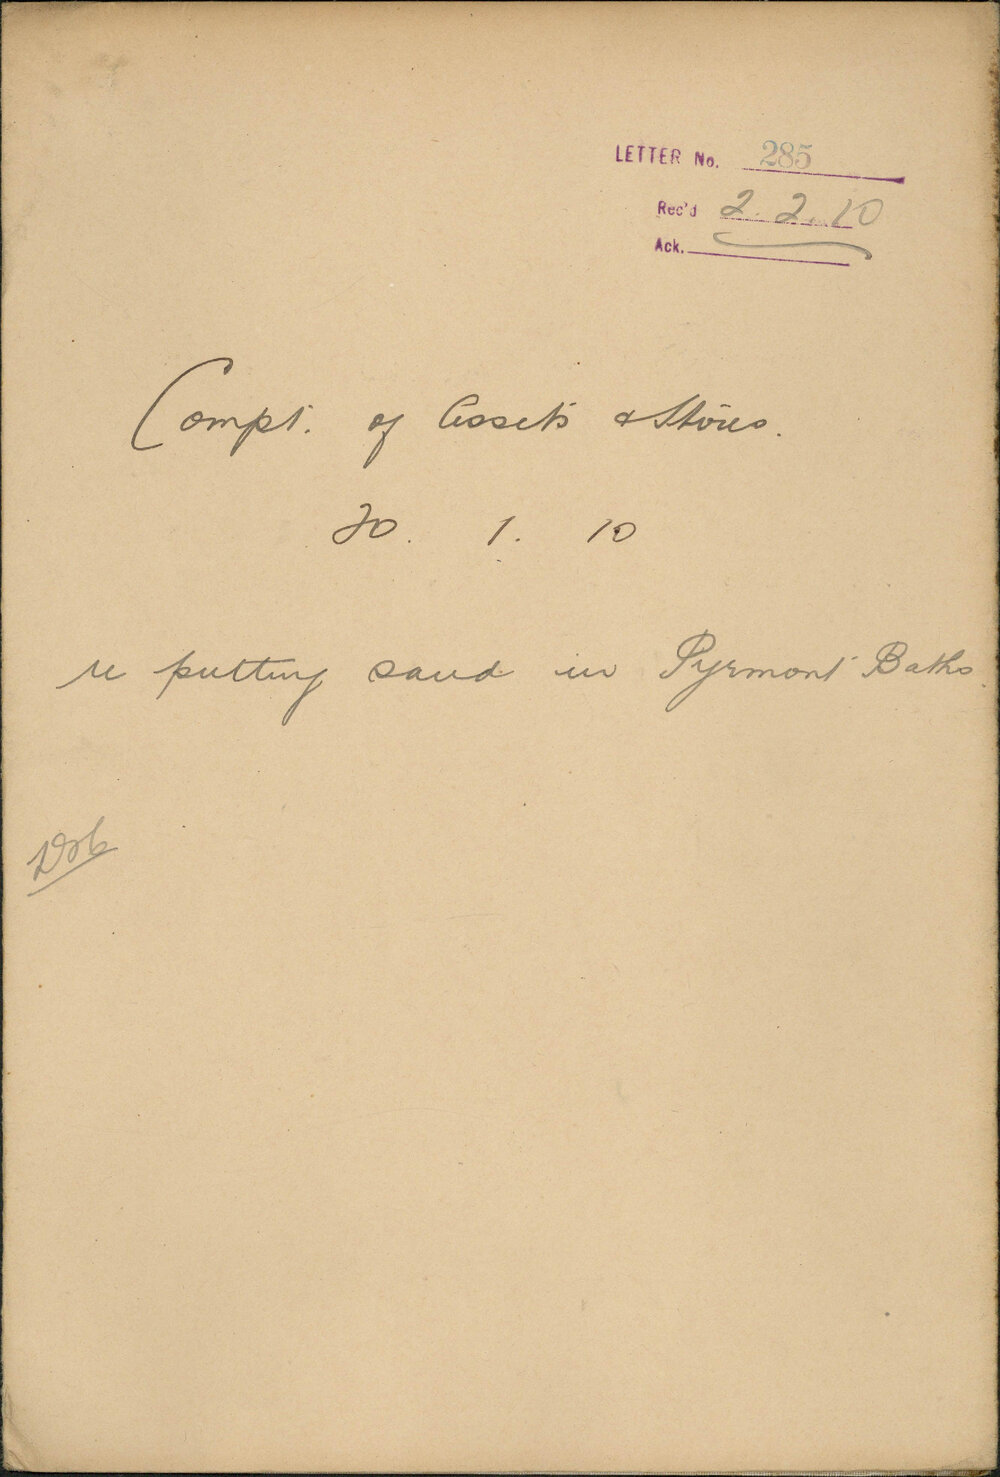 LETTER No. 285
Rec'd 2.2.10
Ack.
Compt. of Assets & Stores.
20. 1. 10
re putting sand in Pyrmont Baths.